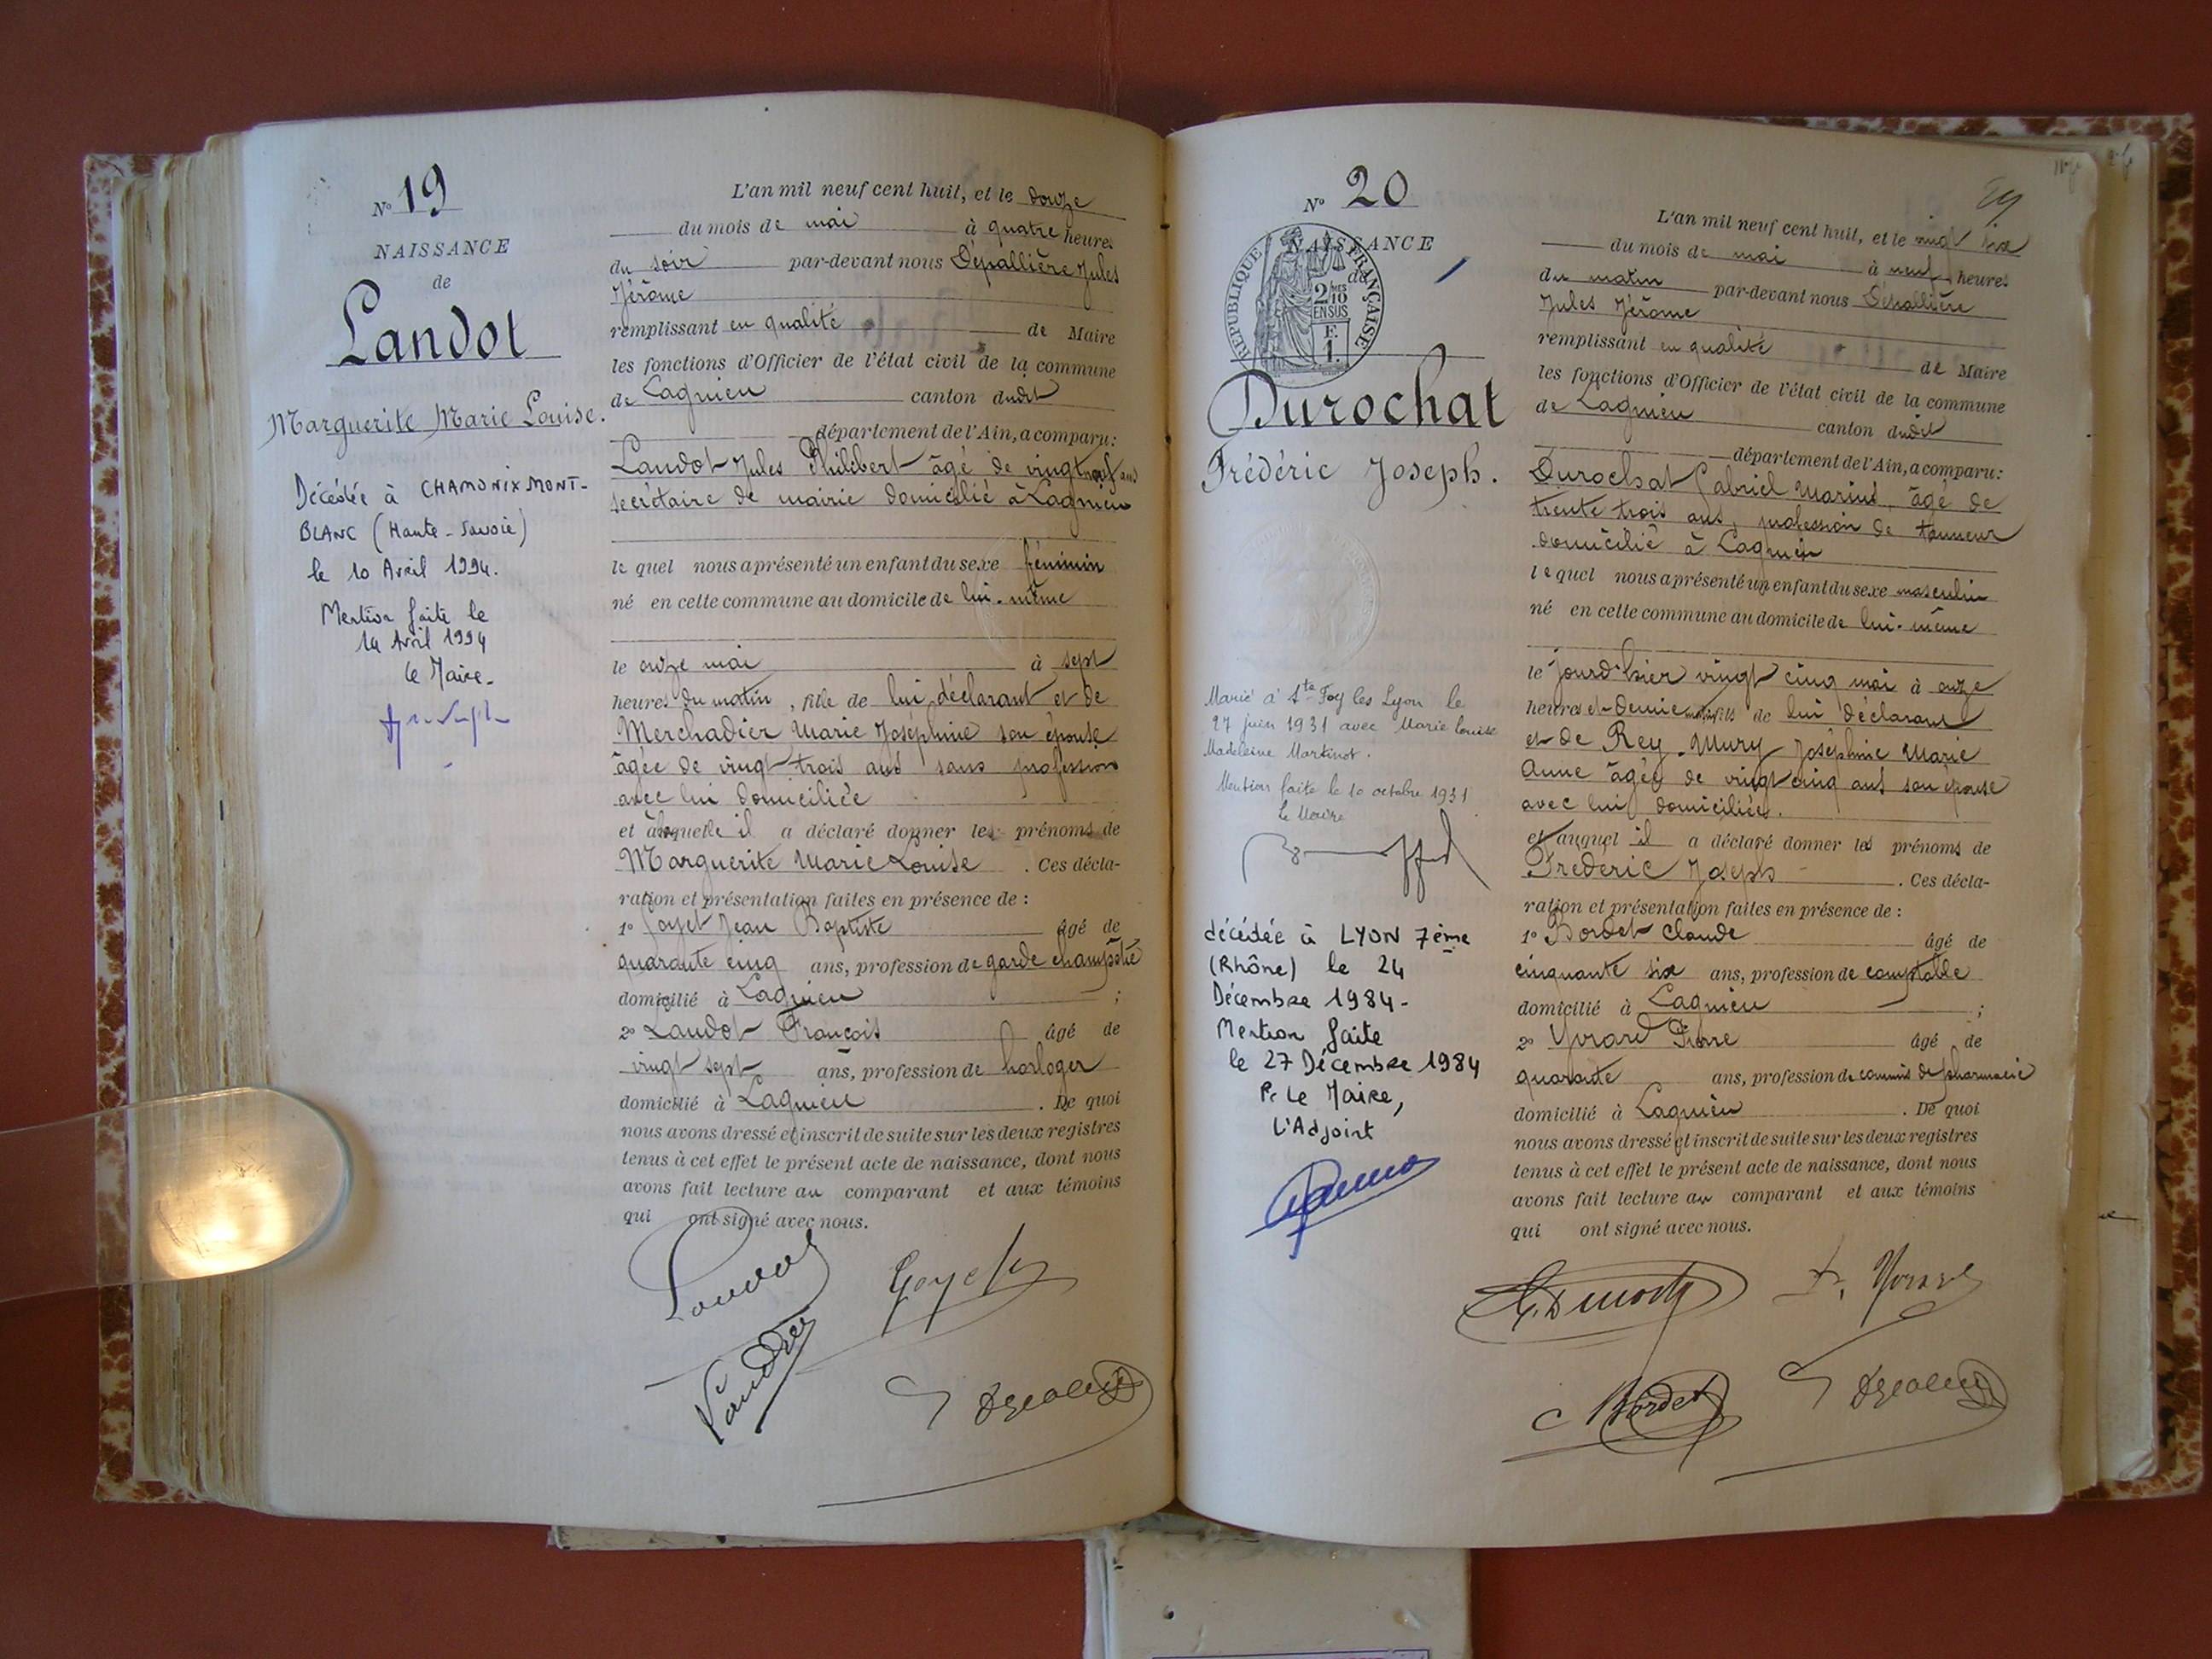 N° 19
NAISSANCE
de
Landot
Marguerite Marie Louise.
Décédée à CHAMONIX MONT-
BLANC (Haute-Savoie)
le 10 Avril 1994.
Mention faite le
14 Avril 1994
le Maire.
L'an mil neuf cent huit, et le douze
du mois de mai à quatre heures
du soir par-devant nous Dépallière Jules
Jérôme
remplissant en qualité de Maire
les fonctions d'Officier de l'état civil de la commune
de Lagnieu canton dudit
département de l'Ain, a comparu:
Landot Jules Philibert âgé de vingt neuf ans
secrétaire de mairie domicilié à Lagnieu
le quel nous a présenté un enfant du sexe féminin
né en cette commune au domicile de lui-même
le onze mai à sept
heures du matin, fille de lui déclarant et de
Merchadier Marie Joséphine son épouse
âgée de vingt-trois ans sans profession
avec lui domiciliée
et à laquelle il a déclaré donner les prénoms de
Marguerite Marie Louise . Ces décla-
ration et présentation faites en présence de :
1° Goyet Jean Baptiste âgé de
quarante cinq ans, profession de garde champêtre
domicilié à Lagnieu ;
2° Landot François âgé de
vingt sept ans, profession de horloger
domicilié à Lagnieu . De quoi
nous avons dressé et inscrit de suite sur les deux registres
tenus à cet effet le présent acte de naissance, dont nous
avons fait lecture au comparant et aux témoins
qui ont signé avec nous.
Landot Goyet
N° 20
NAISSANCE
de
REPUBLIQUE FRANÇAISE
2/10 EN SUS
F.
1.
Durochat
Frédéric Joseph.
Marié à Ste Foy les Lyon le
27 juin 1931 avec Marie Louise
Madeleine Martinot.
Mention faite le 10 octobre 1931
Le Maire
décédée à LYON 7ème
(Rhône) le 24
Décembre 1984-
Mention faite
le 27 Décembre 1984
P. Le Maire,
L'Adjoint
29
L'an mil neuf cent huit, et le vingt six
du mois de mai à neuf heures
du matin par-devant nous Dépallière
Jules Jérôme
remplissant en qualité de Maire
les fonctions d'Officier de l'état civil de la commune
de Lagnieu canton dudit
département de l'Ain, a comparu:
Durochat Gabriel Marius, âgé de
trente trois ans, profession de tanneur
domicilié à Lagnieu
le quel nous a présenté un enfant du sexe masculin
né en cette commune au domicile de lui-même
le jourd'hier vingt cinq mai à onze
heures et demie matin fils de lui déclarant
et de Rey-Mury Joséphine Marie
Anne âgée de vingt cinq ans son épouse
avec lui domiciliée.
et auquel il a déclaré donner les prénoms de
Frédéric Joseph . Ces décla-
ration et présentation faites en présence de :
1° Bordet Claude âgé de
cinquante six ans, profession de comptable
domicilié à Lagnieu ;
2° Yvrard Pierre âgé de
quarante ans, profession de commis de pharmacie
domicilié à Lagnieu . De quoi
nous avons dressé et inscrit de suite sur les deux registres
tenus à cet effet le présent acte de naissance, dont nous
avons fait lecture au comparant et aux témoins
qui ont signé avec nous.
C Bordet